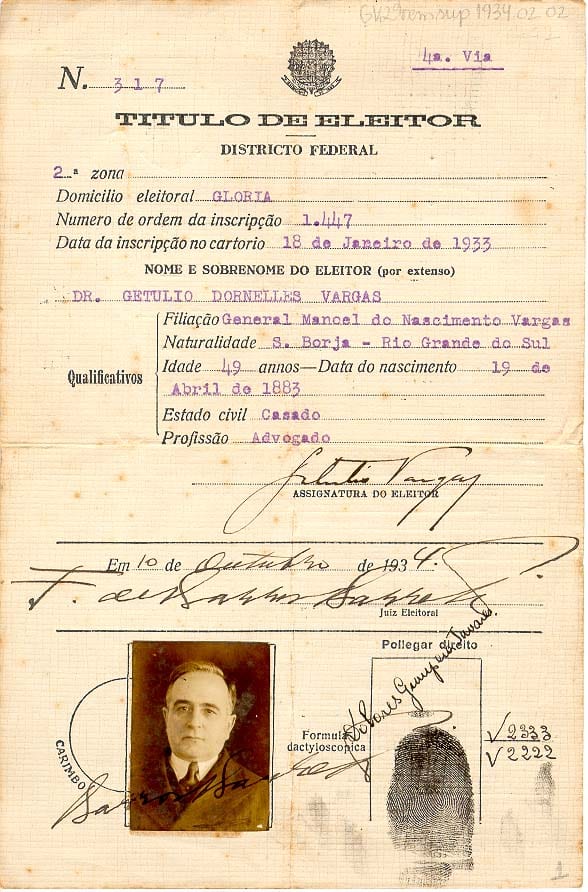 GV 29 rem.sup 1934.02.02
4a. Via
N. 317
TITULO DE ELEITOR
DISTRICTO FEDERAL
2.ª zona
Domicilio eleitoral GLORIA
Numero de ordem da inscripção 1.447
Data da inscripção no cartorio 18 de Janeiro de 1933
NOME E SOBRENOME DO ELEITOR (por extenso)
DR. GETULIO DORNELLES VARGAS
Qualificativos
Filiação General Manoel do Nascimento Vargas
Naturalidade S. Borja - Rio Grande do Sul
Idade 49 annos—Data do nascimento 19 de
Abril de 1883
Estado civil Casado
Profissão Advogado
Getulio Vargas
ASSIGNATURA DO ELEITOR
Em 10 de Outubro de 1934.
F. de Barros Barreto
Juiz Eleitoral
Pollegar direito
CARIMBO
Formula dactyloscopica
Barros Barreto
V 2333
V 2222
1